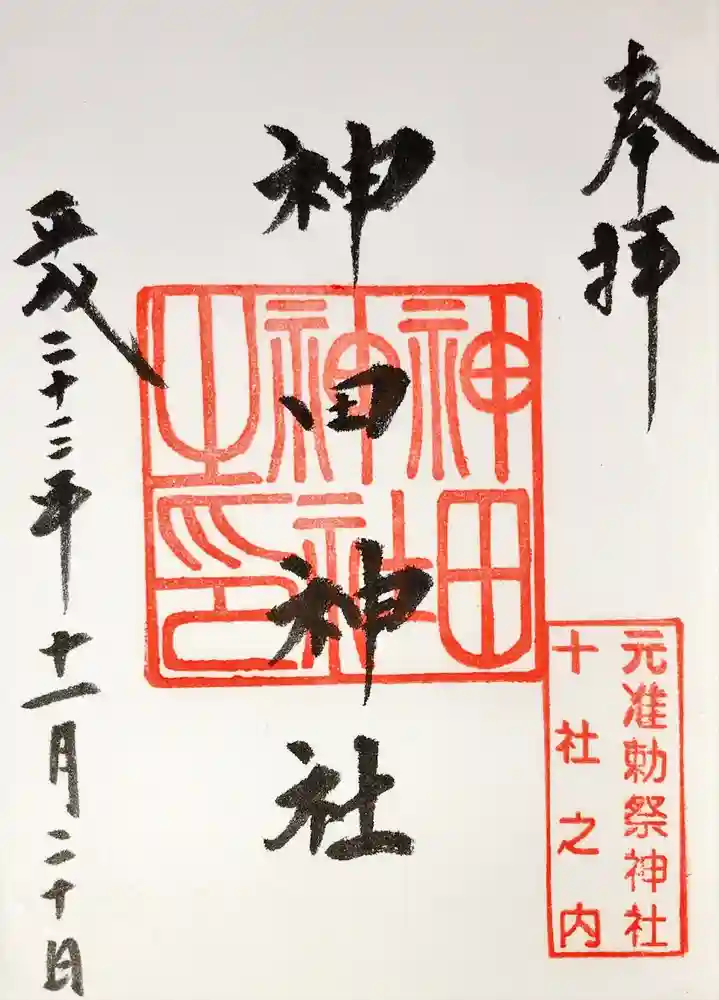 奉拝
神田神社
平成二十三年十一月二十日
神田
神社
之印
元准勅祭神社
十社之内